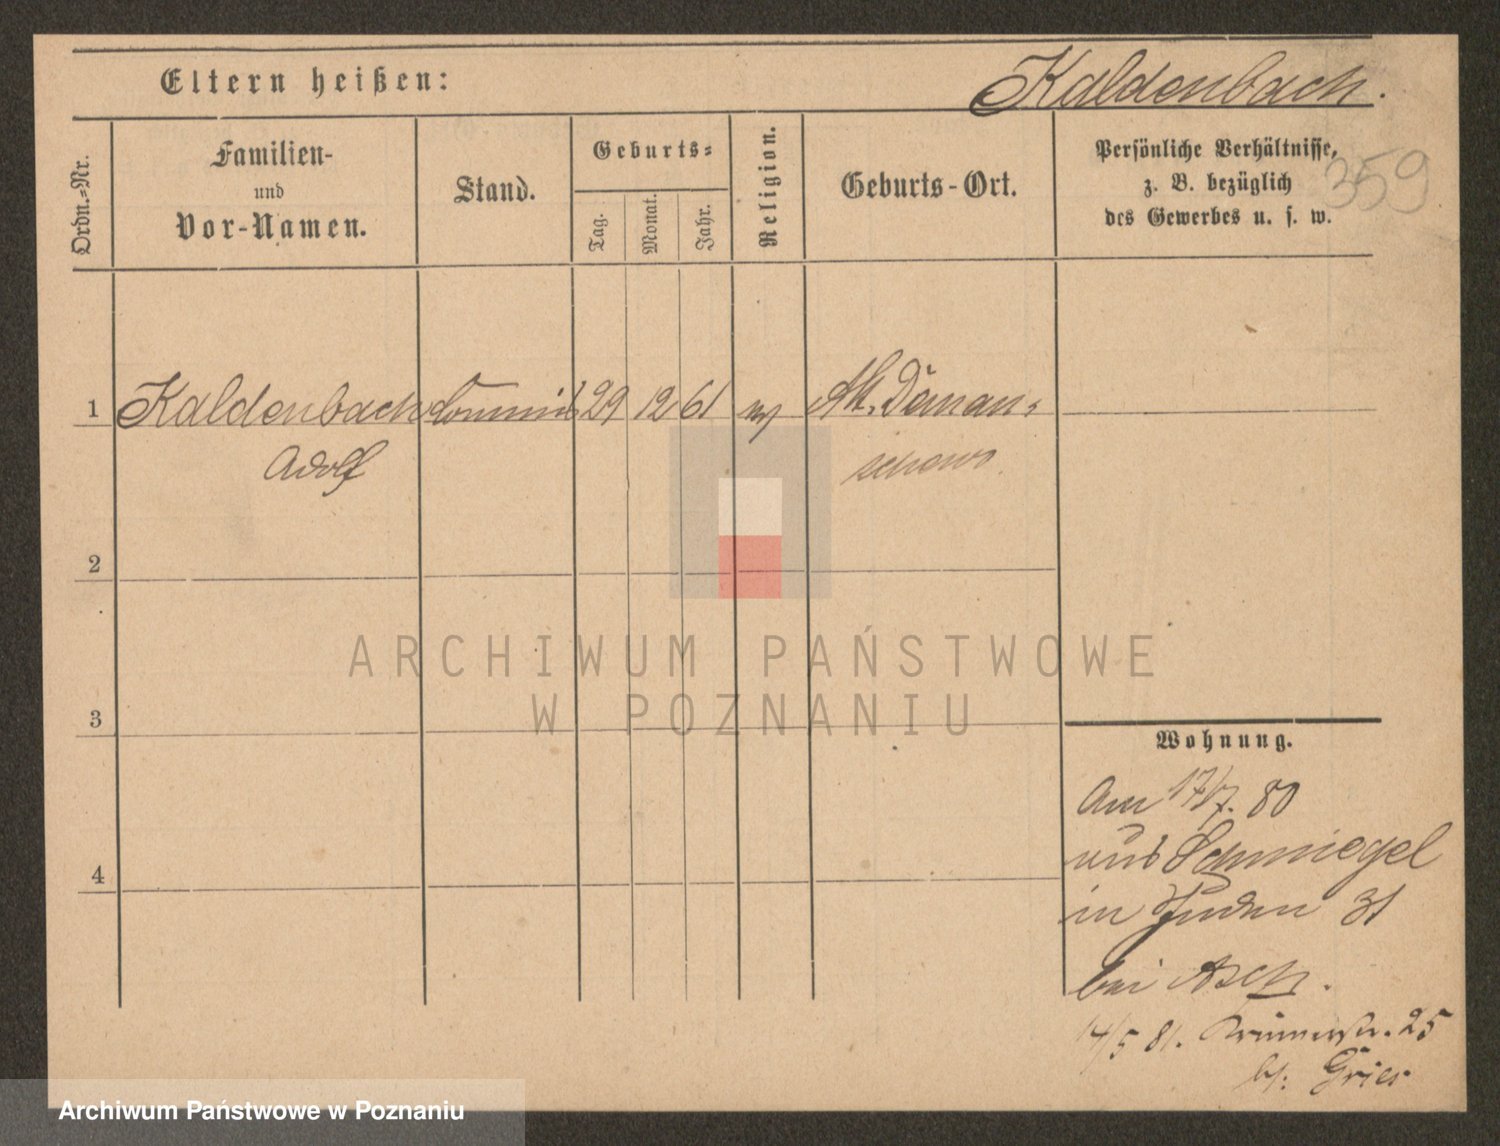 Eltern heißen:
Kaldenbach.
359
Ordn.-Nr.
Familien-
und
Vor-Namen.
Stand.
Geburts-
Tag.
Monat.
Jahr.
Religion.
Geburts-Ort.
Persönliche Verhältnisse,
z. B. bezüglich
des Gewerbes u. s. w.
1 Kaldenbach Commis 29 12 61
Adolf
2
3
4
Wohnung.
Am 17/7. 80
aus Schmiegel
in Juden 31
bei Asch.
14/5 81. Krämerstr. 25
b/: Gries
ARCHIWUM PAŃSTWOWE
W POZNANIU
Archiwum Państwowe w Poznaniu